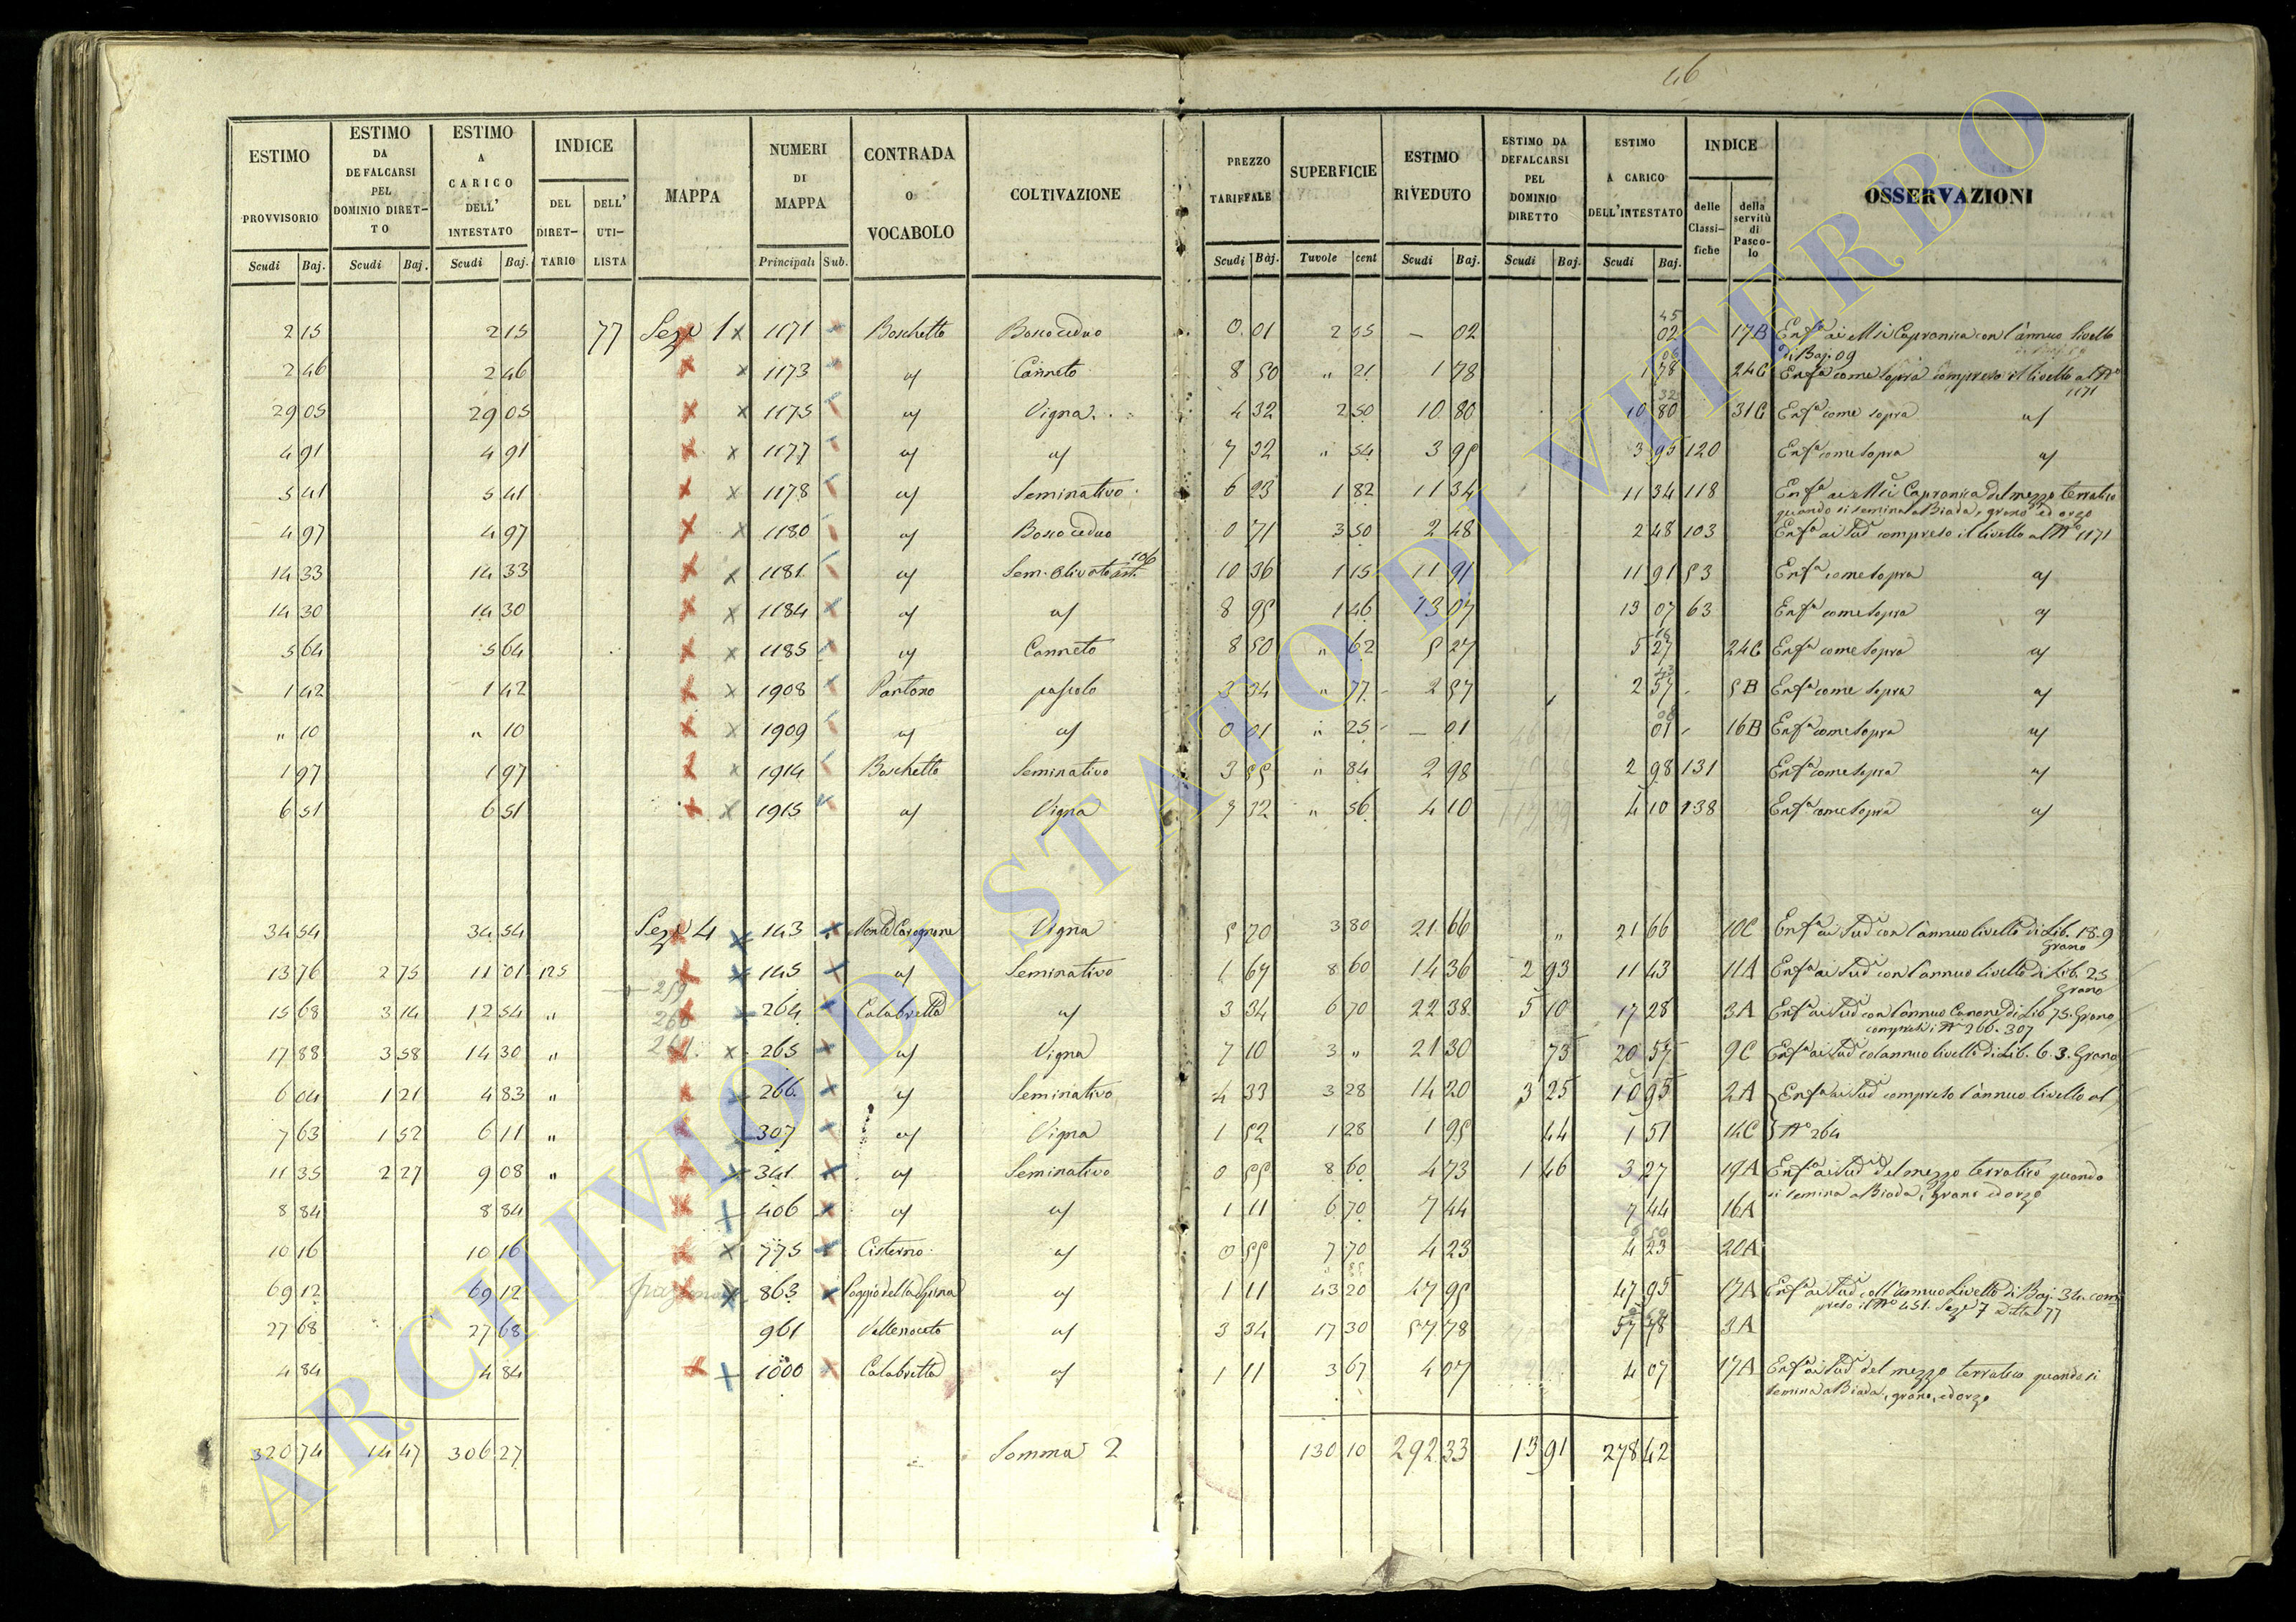 46
ESTIMO PROVVISORIO | ESTIMO DA DEFALCARSI PEL DOMINIO DIRETTO | ESTIMO A CARICO DELL' INTESTATO | INDICE DEL DIRETTARIO | DELL' UTILISTA | MAPPA | NUMERI DI MAPPA | CONTRADA O VOCABOLO | COLTIVAZIONE | PREZZO TARIFFALE | SUPERFICIE | ESTIMO RIVEDUTO | ESTIMO DA DEFALCARSI PEL DOMINIO DIRETTO | ESTIMO A CARICO DELL'INTESTATO | INDICE delle Classifiche | della servitù di Pascolo | OSSERVAZIONI
Scudi Baj. | Scudi Baj. | Scudi Baj. | Principali Sub. | Scudi Baj. | Tavole cent | Scudi Baj. | Scudi Baj. | Scudi Baj.
2 15 | 2 15 | 77 | Sez. 1 | 1171 | Boschetto | Bosco ceduo | 0 01 | 2 55 | — 02 | 02 45 | 17B | Enfa ai Capranica con l'annuo livello di Baj. 09
2 46 | 2 46 | 1173 | " | Canneto | 8 50 | " 21 | 1 78 | 1 78 | 24C | Enfa come sopra compreso il livello al No 1171
29 05 | 29 05 | 1175 | " | Vigna | 4 32 | 2 50 | 10 80 | 10 80 32 | 31C | Enfa come sopra
4 91 | 4 91 | 1177 | 7 32 | " 54 | 3 95 | 3 95 | 120 | Enfa come sopra
5 41 | 5 41 | 1178 | Seminativo | 6 23 | 1 82 | 11 34 | 11 34 | 118 | Enfa ai Capranica del mezzo terratico quando si semina a Biada, grano ed orzo
4 97 | 4 97 | 1180 | Bosco ceduo | 0 71 | 3 50 | 2 48 | 2 48 | 103 | Enfa ai Sudi compreso il livello al No 1171
14 33 | 14 33 | 1181 | Sem. Olivato ast. 106 | 10 36 | 1 15 | 11 91 | 11 91 | 53 | Enfa come sopra
14 30 | 14 30 | 1184 | 8 95 | 1 46 | 13 07 | 13 07 | 63 | Enfa come sopra
5 64 | 5 64 | 1185 | Canneto | 8 50 | " 62 | 5 27 | 5 27 | 24C | Enfa come sopra
1 42 | 1 42 | 1908 | Pantano | pascolo | 3 34 | " 77 | 2 57 | 2 57 | 5B | Enfa come sopra
" 10 | " 10 | 1909 | 0 01 | " 25 | — 01 | 01 | 16B | Enfa come sopra
1 97 | 1 97 | 1914 | Boschetto | Seminativo | 3 55 | " 84 | 2 98 | 2 98 | 131 | Enfa come sopra
6 51 | 6 51 | 1915 | Vigna | 7 32 | " 56 | 4 10 | 4 10 | 138 | Enfa come sopra
34 54 | 34 54 | Sez. 4 | 143 | Vigna | 5 70 | 3 80 | 21 66 | " | 21 66 | 10C | Enfa ai Sudi con l'annuo livello di Lib. 18.9 Grano
13 76 | 2 75 | 11 01 | 125 | 145 | Seminativo | 1 67 | 8 60 | 14 36 | 2 93 | 11 43 | 11A | Enfa ai Sudi con l'annuo livello di Lib. 25 Grano
15 68 | 3 14 | 12 54 | " | 264 | Calabretta | 3 34 | 6 70 | 22 38 | 5 10 | 17 28 | 3A | Enfa ai Sudi con l'annuo Canone di Lib. 75 Grano compresi i No 266. 307
17 88 | 3 58 | 14 30 | " | 265 | Vigna | 7 10 | 3 " | 21 30 | 73 | 20 57 | 9C | Enfa ai Sudi col annuo livello di Lib. 6.3. Grano
6 04 | 1 21 | 4 83 | " | 266 | Seminativo | 4 33 | 3 28 | 14 20 | 3 25 | 10 95 | 2A | Enfa ai Sudi compreso l'annuo livello al
7 63 | 1 52 | 6 11 | " | 307 | Vigna | 1 52 | 1 28 | 1 95 | 44 | 1 51 | 14C | No 264
11 35 | 2 27 | 9 08 | " | 341 | Seminativo | 0 55 | 8 60 | 4 73 | 1 46 | 3 27 | 19A | Enfa ai Sudi del mezzo terratico quando si semina a Biada, Grano ed orzo
8 84 | 8 84 | 406 | 1 11 | 6 70 | 7 44 | 7 44 | 16A
10 16 | 10 16 | 775 | Cisterno | 0 55 | 7 70 | 4 23 | 4 23 | 20A
69 12 | 69 12 | 863 | Poggio della Spina | 1 11 | 43 20 | 47 95 | 47 95 | 17A | Enfa ai Sudi coll'annuo Livello di Baj. 34. compreso il No 451. Sez. 7 Ditta 77
27 68 | 27 68 | 961 | Vallenoceto | 3 34 | 17 30 | 57 78 | 57 78 | 3A
4 84 | 4 84 | 1000 | Calabretta | 1 11 | 3 67 | 4 07 | 4 07 | 17A | Enfa ai Sudi del mezzo terratico quando si semina a Biada, grano, ed orzo
320 74 | 14 47 | 306 27 | Somma 2 | 130 10 | 292 33 | 13 91 | 278 42
ARCHIVIO DI STATO DI VITERBO